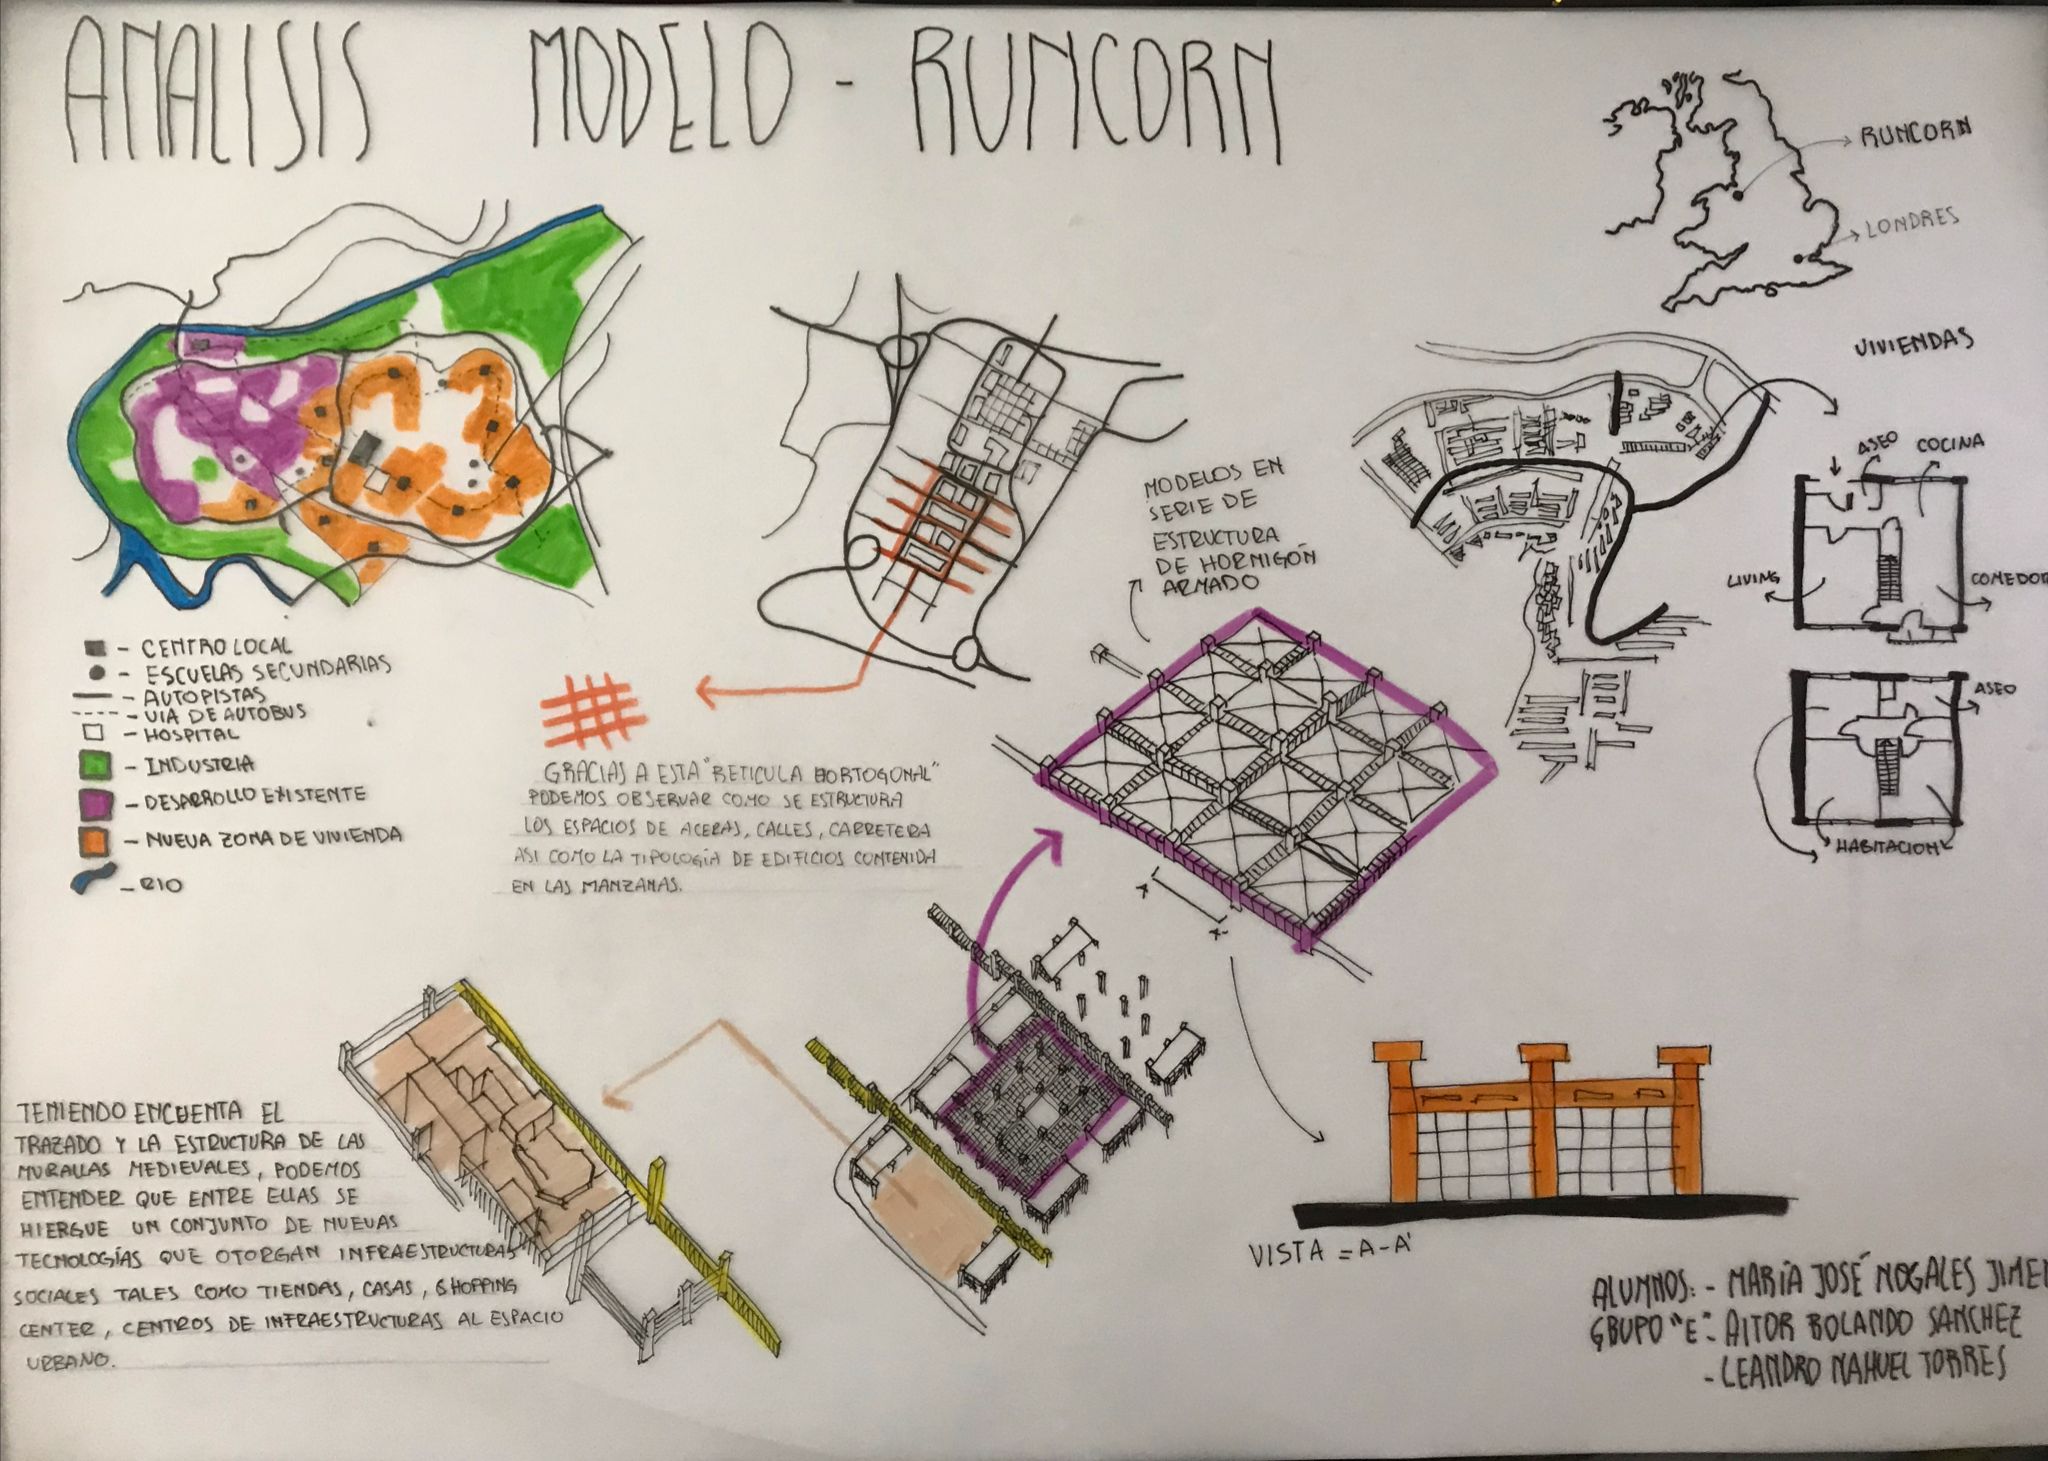 ANALISIS MODELO - RUNCORN
RUNCORN
LONDRES
- CENTRO LOCAL
- ESCUELAS SECUNDARIAS
- AUTOPISTAS
- VIA DE AUTOBUS
- HOSPITAL
- INDUSTRIA
- DESARROLLO EXISTENTE
- NUEVA ZONA DE VIVIENDA
- RIO
GRACIAS A ESTA "RETICULA HORTOGONAL"
PODEMOS OBSERVAR COMO SE ESTRUCTURA
LOS ESPACIOS DE ACERAS, CALLES, CARRETERA
ASI COMO LA TIPOLOGÍA DE EDIFICIOS CONTENIDA
EN LAS MANZANAS.
MODELOS EN
SERIE DE
ESTRUCTURA
DE HORMIGÓN
ARMADO
VIVIENDAS
ASEO
COCINA
LIVING
COMEDOR
ASEO
HABITACION
TENIENDO EN CUENTA EL
TRAZADO Y LA ESTRUCTURA DE LAS
MURALLAS MEDIEVALES, PODEMOS
ENTENDER QUE ENTRE ELLAS SE
HIERGUE UN CONJUNTO DE NUEVAS
TECNOLOGÍAS QUE OTORGAN INFRAESTRUCTURAS
SOCIALES TALES COMO TIENDAS, CASAS, SHOPPING
CENTER, CENTROS DE INFRAESTRUCTURAS AL ESPACIO
URBANO.
VISTA = A-A'
ALUMNOS: - MARÍA JOSÉ NOGALES JIMEN
GRUPO "E" - AITOR ROLANDO SANCHEZ
- LEANDRO NAHUEL TORRES